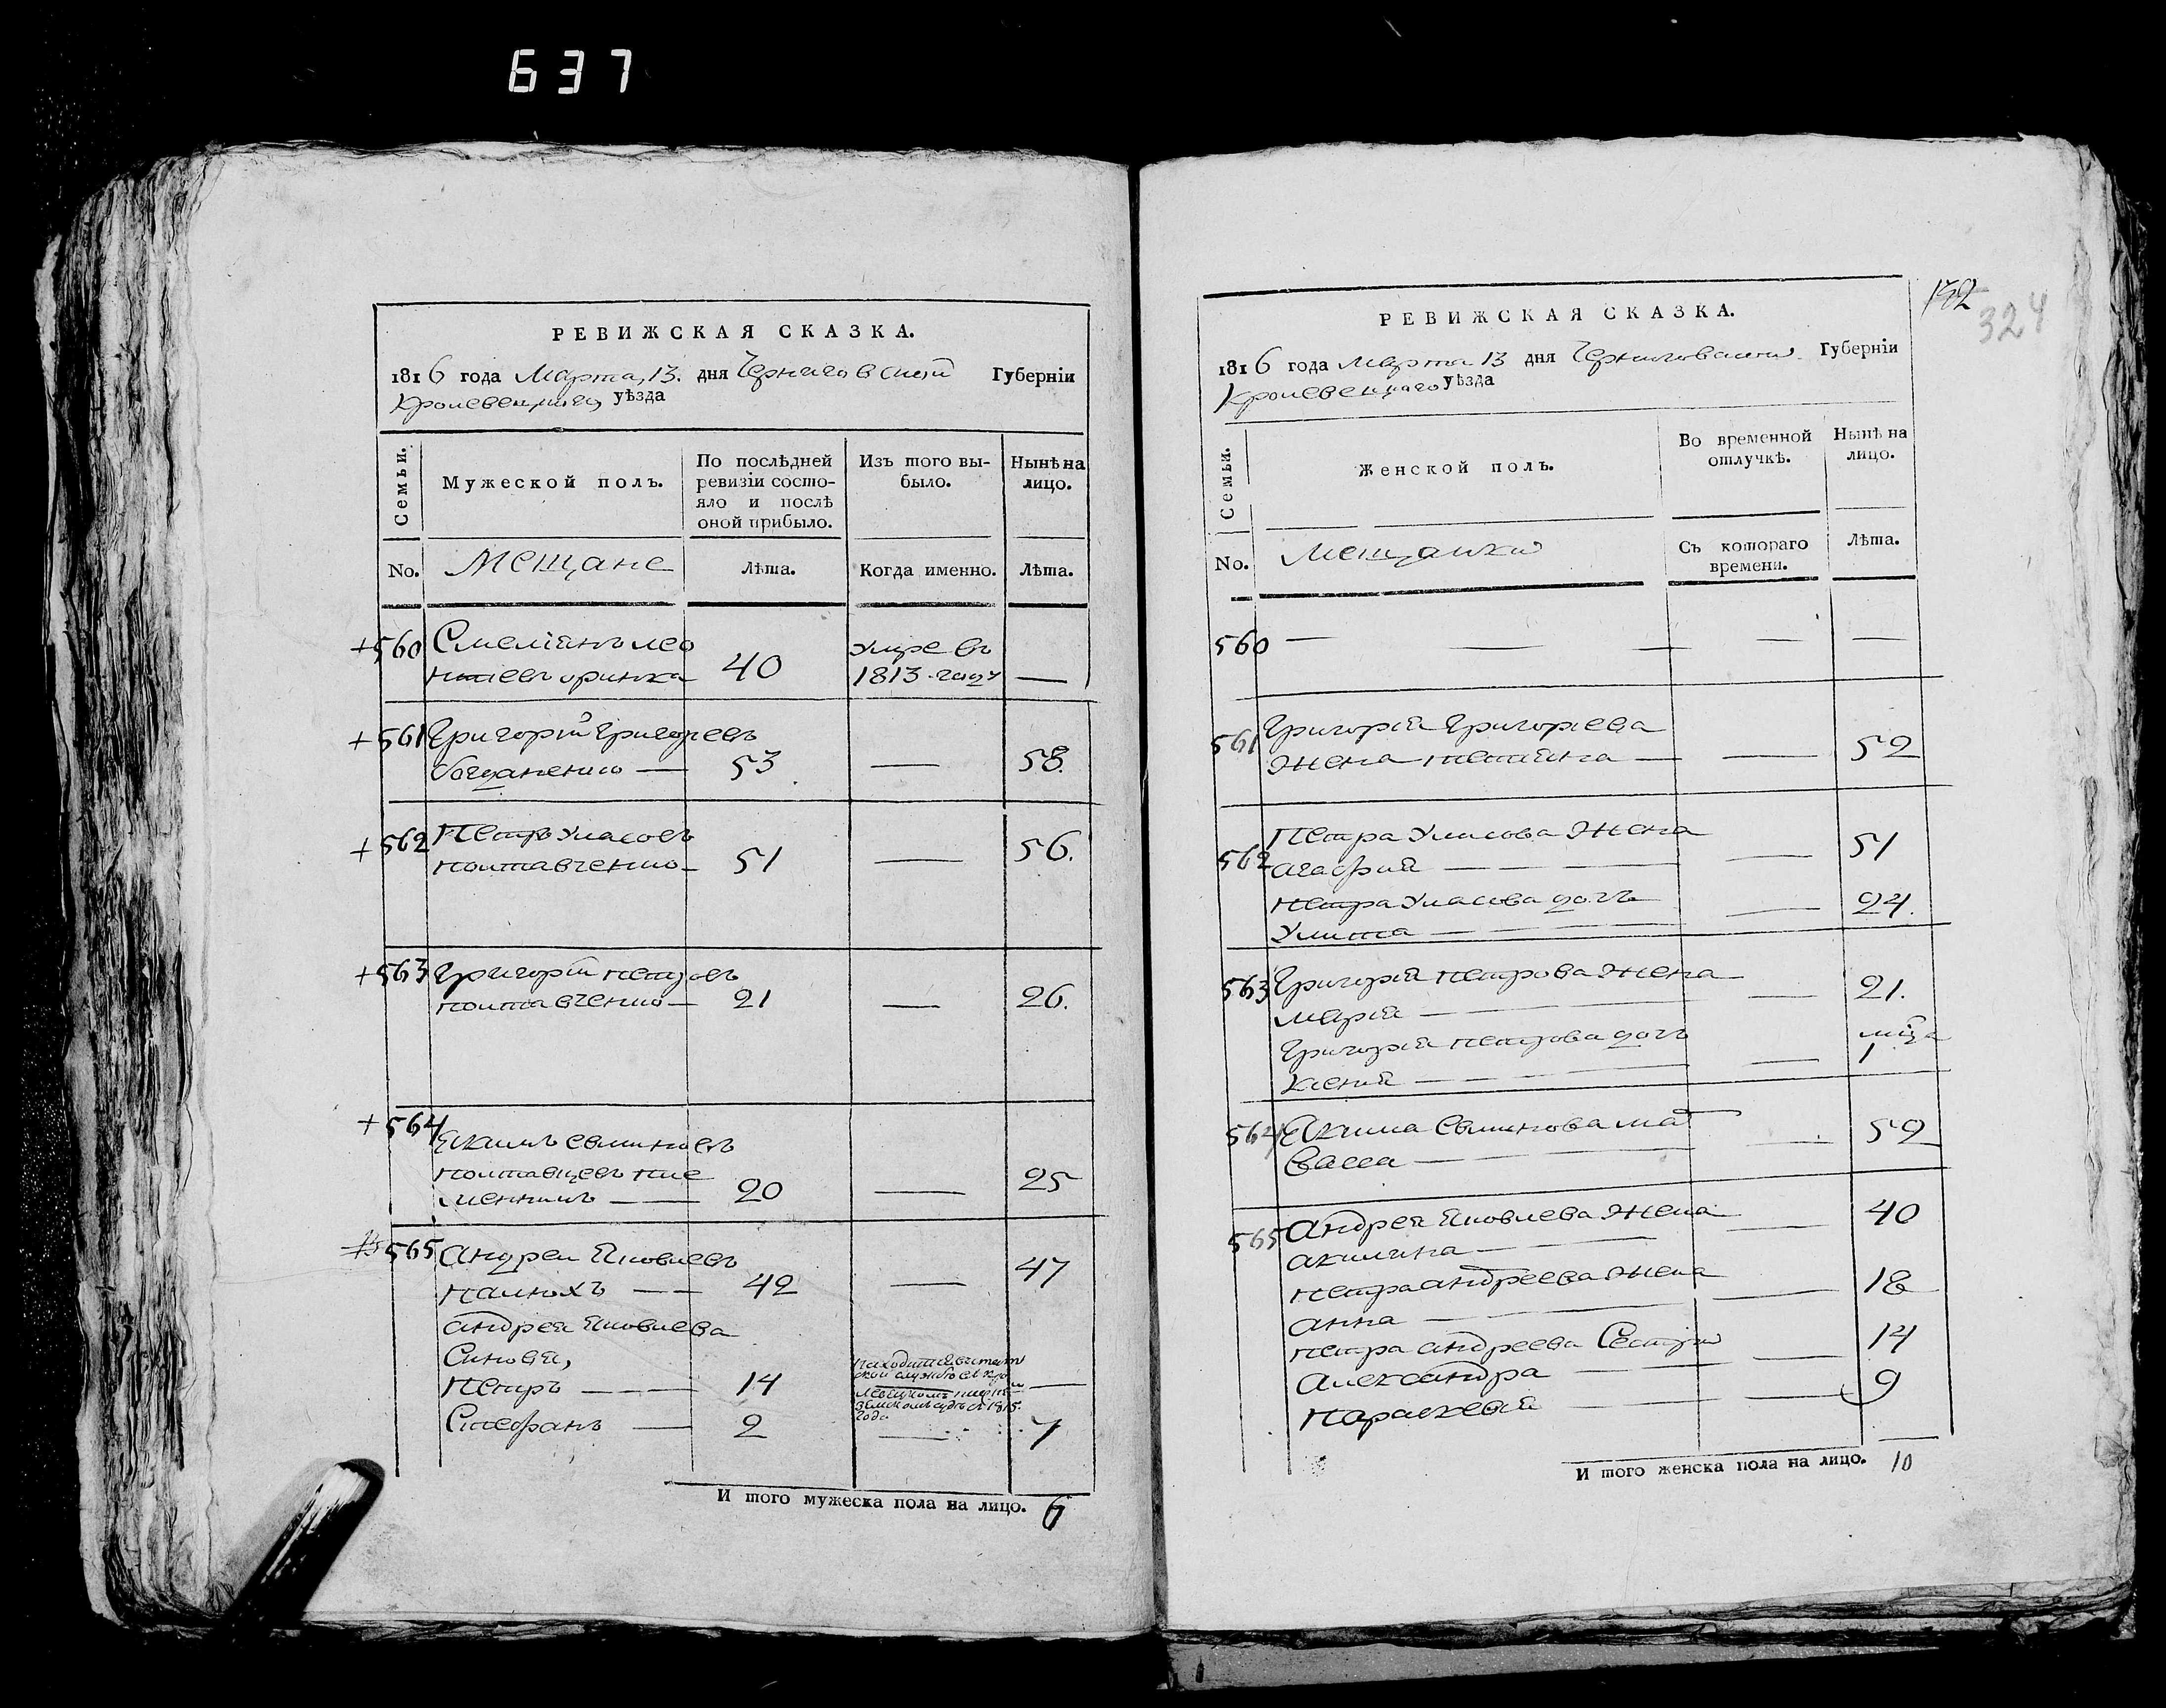 637
РЕВИЖСКАЯ СКАЗКА.
1816 года Марта 13. дня Черниговской Губерніи
Кролевецкаго уѣзда
Семьи.
Мужеской полъ.
По послѣдней ревизіи состо-
яло и послѣ
оной прибыло.
Изъ того вы-
было.
Нынѣ на
лицо.
No.
Мещане
Лѣта.
Когда именно.
Лѣта.
+560 Лео
40
умре въ
1813 году —
+561 Григорій Григорьевъ
— 53 — 58.
+562 Петръ Уласовъ
Полтавченко — 51 — 56.
+563 Григорій Петровъ
Полтавченко — 21 — 26.
+564
Якимъ
Полтавцевъ пле
менникъ — 20 — 25
565 Андрей Яковлевъ
Палюхъ — — 42 — 47
Андрея Яковлева
Синовья,
Петръ — — — 14 —
1815
года
Стефанъ — 2 — 7
И того мужеска пола на лицо. 6
132
324
РЕВИЖСКАЯ СКАЗКА.
1816 года Марта 13 дня Черниговской Губерніи
Кролевецкаго уѣзда
Семьи.
Женской полъ.
Во временной
отлучкѣ.
Нынѣ на
лицо.
No.
Мещанки
Съ котораго
времени.
Лѣта.
560 — — — — —
561 Григорія Григорьева
жена Татіяна — — 52
562 Петра Уласова жена
Агафія — — — — 51
Петра Уласова дочь
Улита — — — — 24.
563 Григорія Петрова жена
Марія — — — 21.
Григорія Петрова дочь
Ксенія — — — — 1
564 Якима мать
Васса — — — — 52
565 Андрея Яковлева жена
Акилина — — — 40
Петра Андреева жена
Анна — — — 18
Петра Андреева Сестри
Александра — — 14
Параскевія — — 9
И того женска пола на лицо. 10